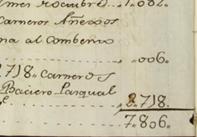 mes Rocubro 1.082.
Carneros Añexos
na al comberno
.006.
2718. Carneros
Baciero Pasqual
2.718.
7.806.